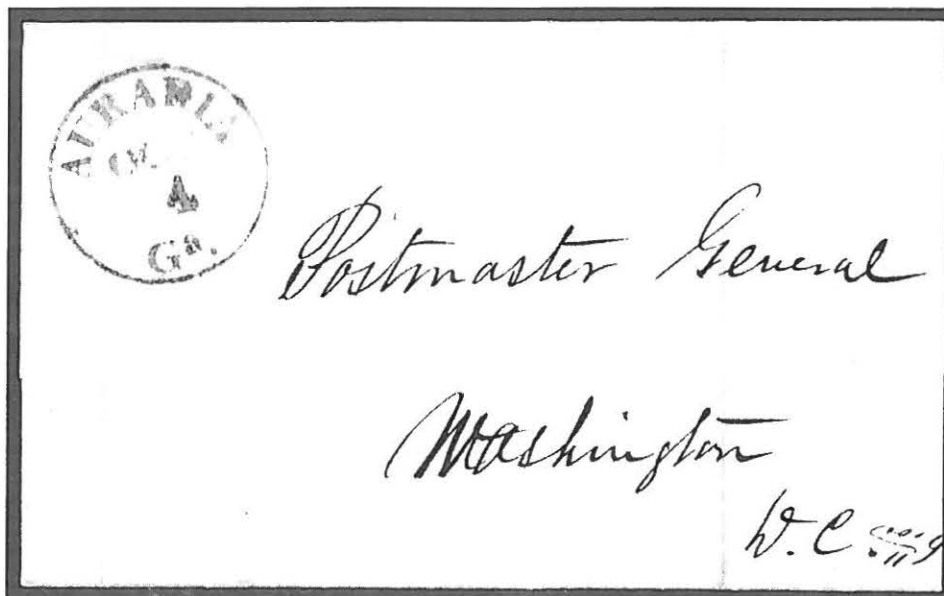 AURARIA
4
Ga.
Postmaster General
Washington
D.C.